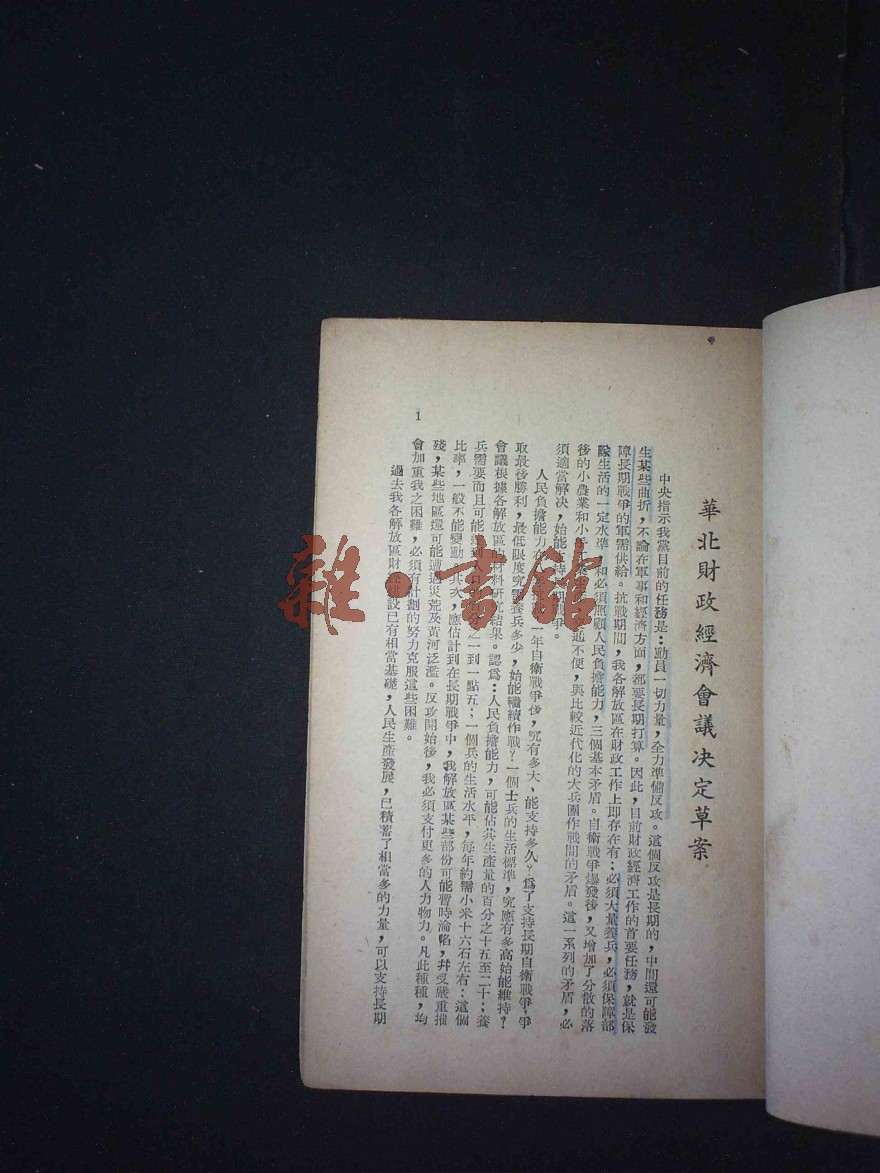 華北財政經濟會議決定草案
中央指示我黨目前的任務是：動員一切力量，全力準備反攻。這個反攻是長期的，中間還可能發
生某些曲折，不論在軍事和經濟方面，都要長期打算。因此，目前財政經濟工作的首要任務，就是保
障長期戰爭的軍需供給。抗戰期間，我各解放區在財政工作上即存在有：必須大量養兵，必須保障部
隊生活的一定水準，和必須照顧人民負擔能力，三個基本矛盾。自衛戰爭爆發後，又增加了分散的落
後的小農業和小手工業 交通不便，與比較近代化的大兵團作戰間的矛盾。這一系列的矛盾，必
須適當解決，始能 持長期 爭。
人民負擔能力在 一年自衛戰爭後，究有多大、能支持多久？爲了支持長期自衛戰爭，爭
取最後勝利，最低限度究需養兵多少，始能繼續作戰？一個士兵的生活標準，究應有多高始能維持？
會議根據各解放區的材料研究結果。認爲：人民負擔能力，可能佔其生產量的百分之十五至二十；養
兵需要而且可能達到人口百分之一到一點五；一個兵的生活水平，每年約需小米十六石左右：這個
比率，一般不能變動。其次，應估計到在長期戰爭中，我解放區某些部份可能暫時淪陷，幷受嚴重摧
殘，某些地區還可能遭遇災荒及黃河泛濫。反攻開始後，我必須支付更多的人力物力。凡此種種，均
會加重我之困難，必須有計劃的努力克服這些困難。
過去我各解放區財經建設已有相當基礎，人民生產發展，已積蓄了相當多的力量，可以支持長期
1
雜·書館